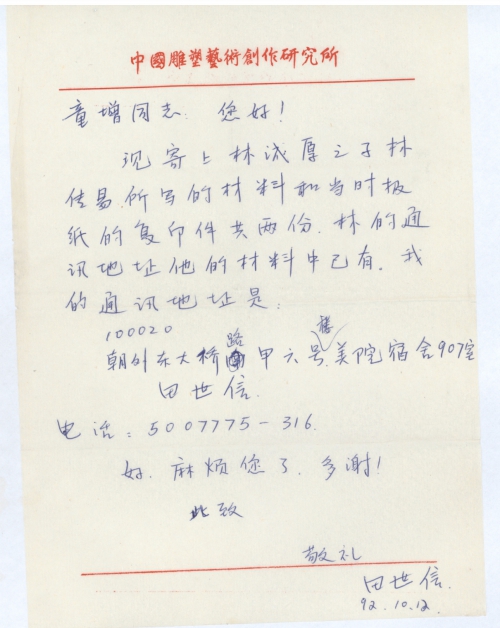 中國雕塑藝術創作研究所
童增同志: 您好!
现寄上林诚厚之子林
佳易所写的材料和当时报
纸的复印件共两份. 林的通
讯地址他的材料中已有. 我
的通讯地址是:
100020
朝外东大桥路甲六号楼美院宿舍907室
田世信.
电话: 5007775-316.
好. 麻烦您了. 多谢!
此致
敬礼
田世信.
92.10.12.